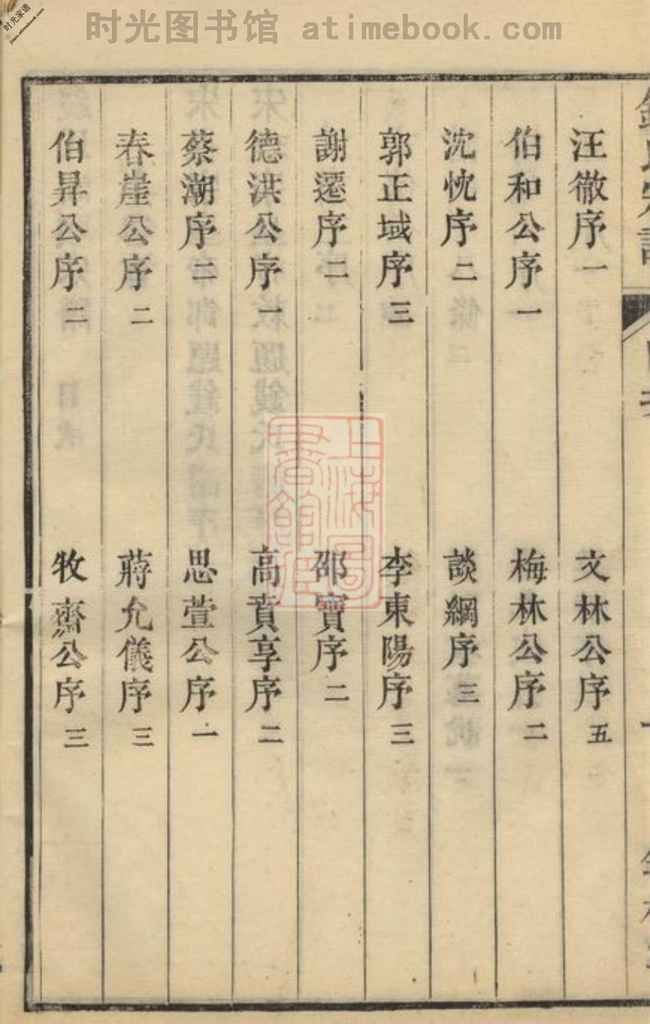 时光图书馆 atimebook.com
时光家谱
汪徹序 一
文林公序 五
伯和公序 一
梅林公序 二
沈忱序 二
談綱序 三
郭正域序 三
李東陽序 三
謝遷序 二
邵寶序 二
德洪公序 一
高賁亨序 二
蔡潮序 二
思萱公序 一
春崖公序 二
蔣允儀序 三
伯昇公序 二
牧齋公序 三
上海圖書館藏